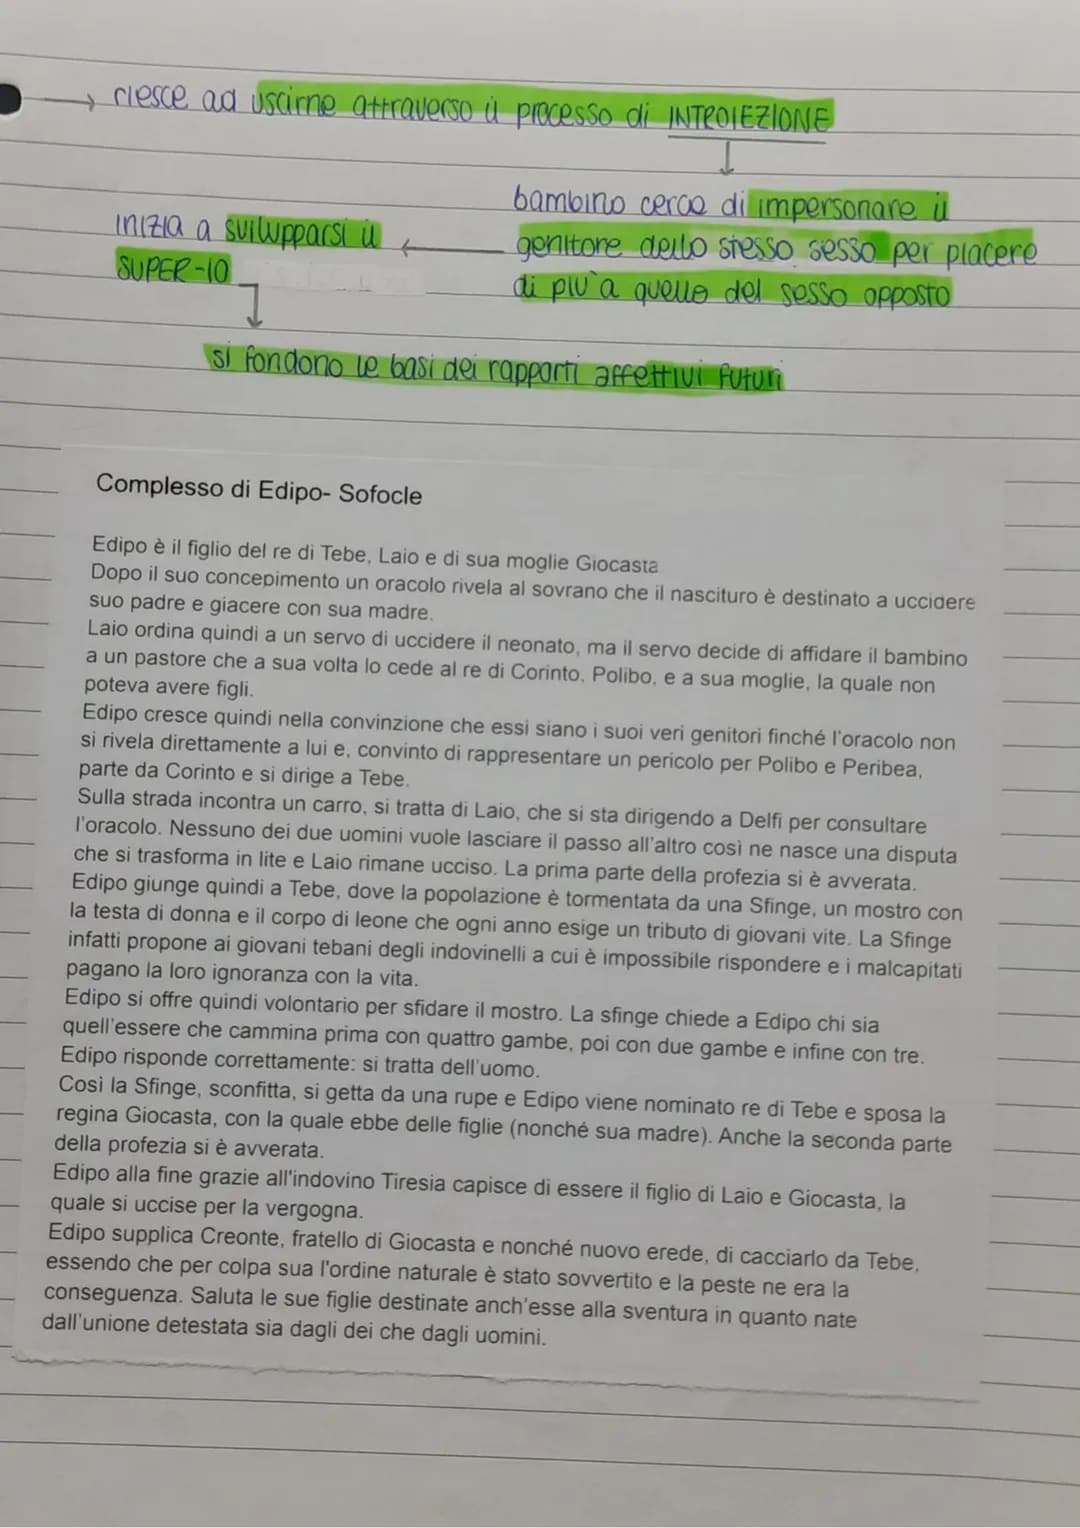 → riesce ad uscirne attraverso il processo di INTROIEZIONE
bambino cerca di impersonare il
genitore dello stesso sesso per piacere
di più a quello del sesso opposto
inizia a svilupparsi il
SUPER-IO
si fondono le basi dei rapporti affettivi futuri
Complesso di Edipo- Sofocle
Edipo è il figlio del re di Tebe, Laio e di sua moglie Giocasta
Dopo il suo concepimento un oracolo rivela al sovrano che il nascituro è destinato a uccidere
suo padre e giacere con sua madre.
Laio ordina quindi a un servo di uccidere il neonato, ma il servo decide di affidare il bambino
a un pastore che a sua volta lo cede al re di Corinto, Polibo, e a sua moglie, la quale non
poteva avere figli.
Edipo cresce quindi nella convinzione che essi siano i suoi veri genitori finché l'oracolo non
si rivela direttamente a lui e, convinto di rappresentare un pericolo per Polibo e Peribea,
parte da Corinto e si dirige a Tebe.
Sulla strada incontra un carro, si tratta di Laio, che si sta dirigendo a Delfi per consultare
l'oracolo. Nessuno dei due uomini vuole lasciare il passo all'altro così ne nasce una disputa
che si trasforma in lite e Laio rimane ucciso. La prima parte della profezia si è avverata.
Edipo giunge quindi a Tebe, dove la popolazione è tormentata da una Sfinge, un mostro con
la testa di donna e il corpo di leone che ogni anno esige un tributo di giovani vite. La Sfinge
infatti propone ai giovani tebani degli indovinelli a cui è impossibile rispondere e i malcapitati
pagano la loro ignoranza con la vita.
Edipo si offre quindi volontario per sfidare il mostro. La sfinge chiede a Edipo chi sia
quell'essere che cammina prima con quattro gambe, poi con due gambe e infine con tre.
Edipo risponde correttamente: si tratta dell'uomo.
Così la Sfinge, sconfitta, si getta da una rupe e Edipo viene nominato re di Tebe e sposa la
regina Giocasta, con la quale ebbe delle figlie (nonché sua madre). Anche la seconda parte
della profezia si è avverata.
Edipo alla fine grazie all'indovino Tiresia capisce di essere il figlio di Laio e Giocasta, la
quale si uccise per la vergogna.
Edipo supplica Creonte, fratello di Giocasta e nonché nuovo erede, di cacciarlo da Tebe,
essendo che per colpa sua l'ordine naturale è stato sovvertito e la peste ne era la
conseguenza. Saluta le sue figlie destinate anch'esse alla sventura in quanto nate
dall'unione detestata sia dagli dei che dagli uomini.